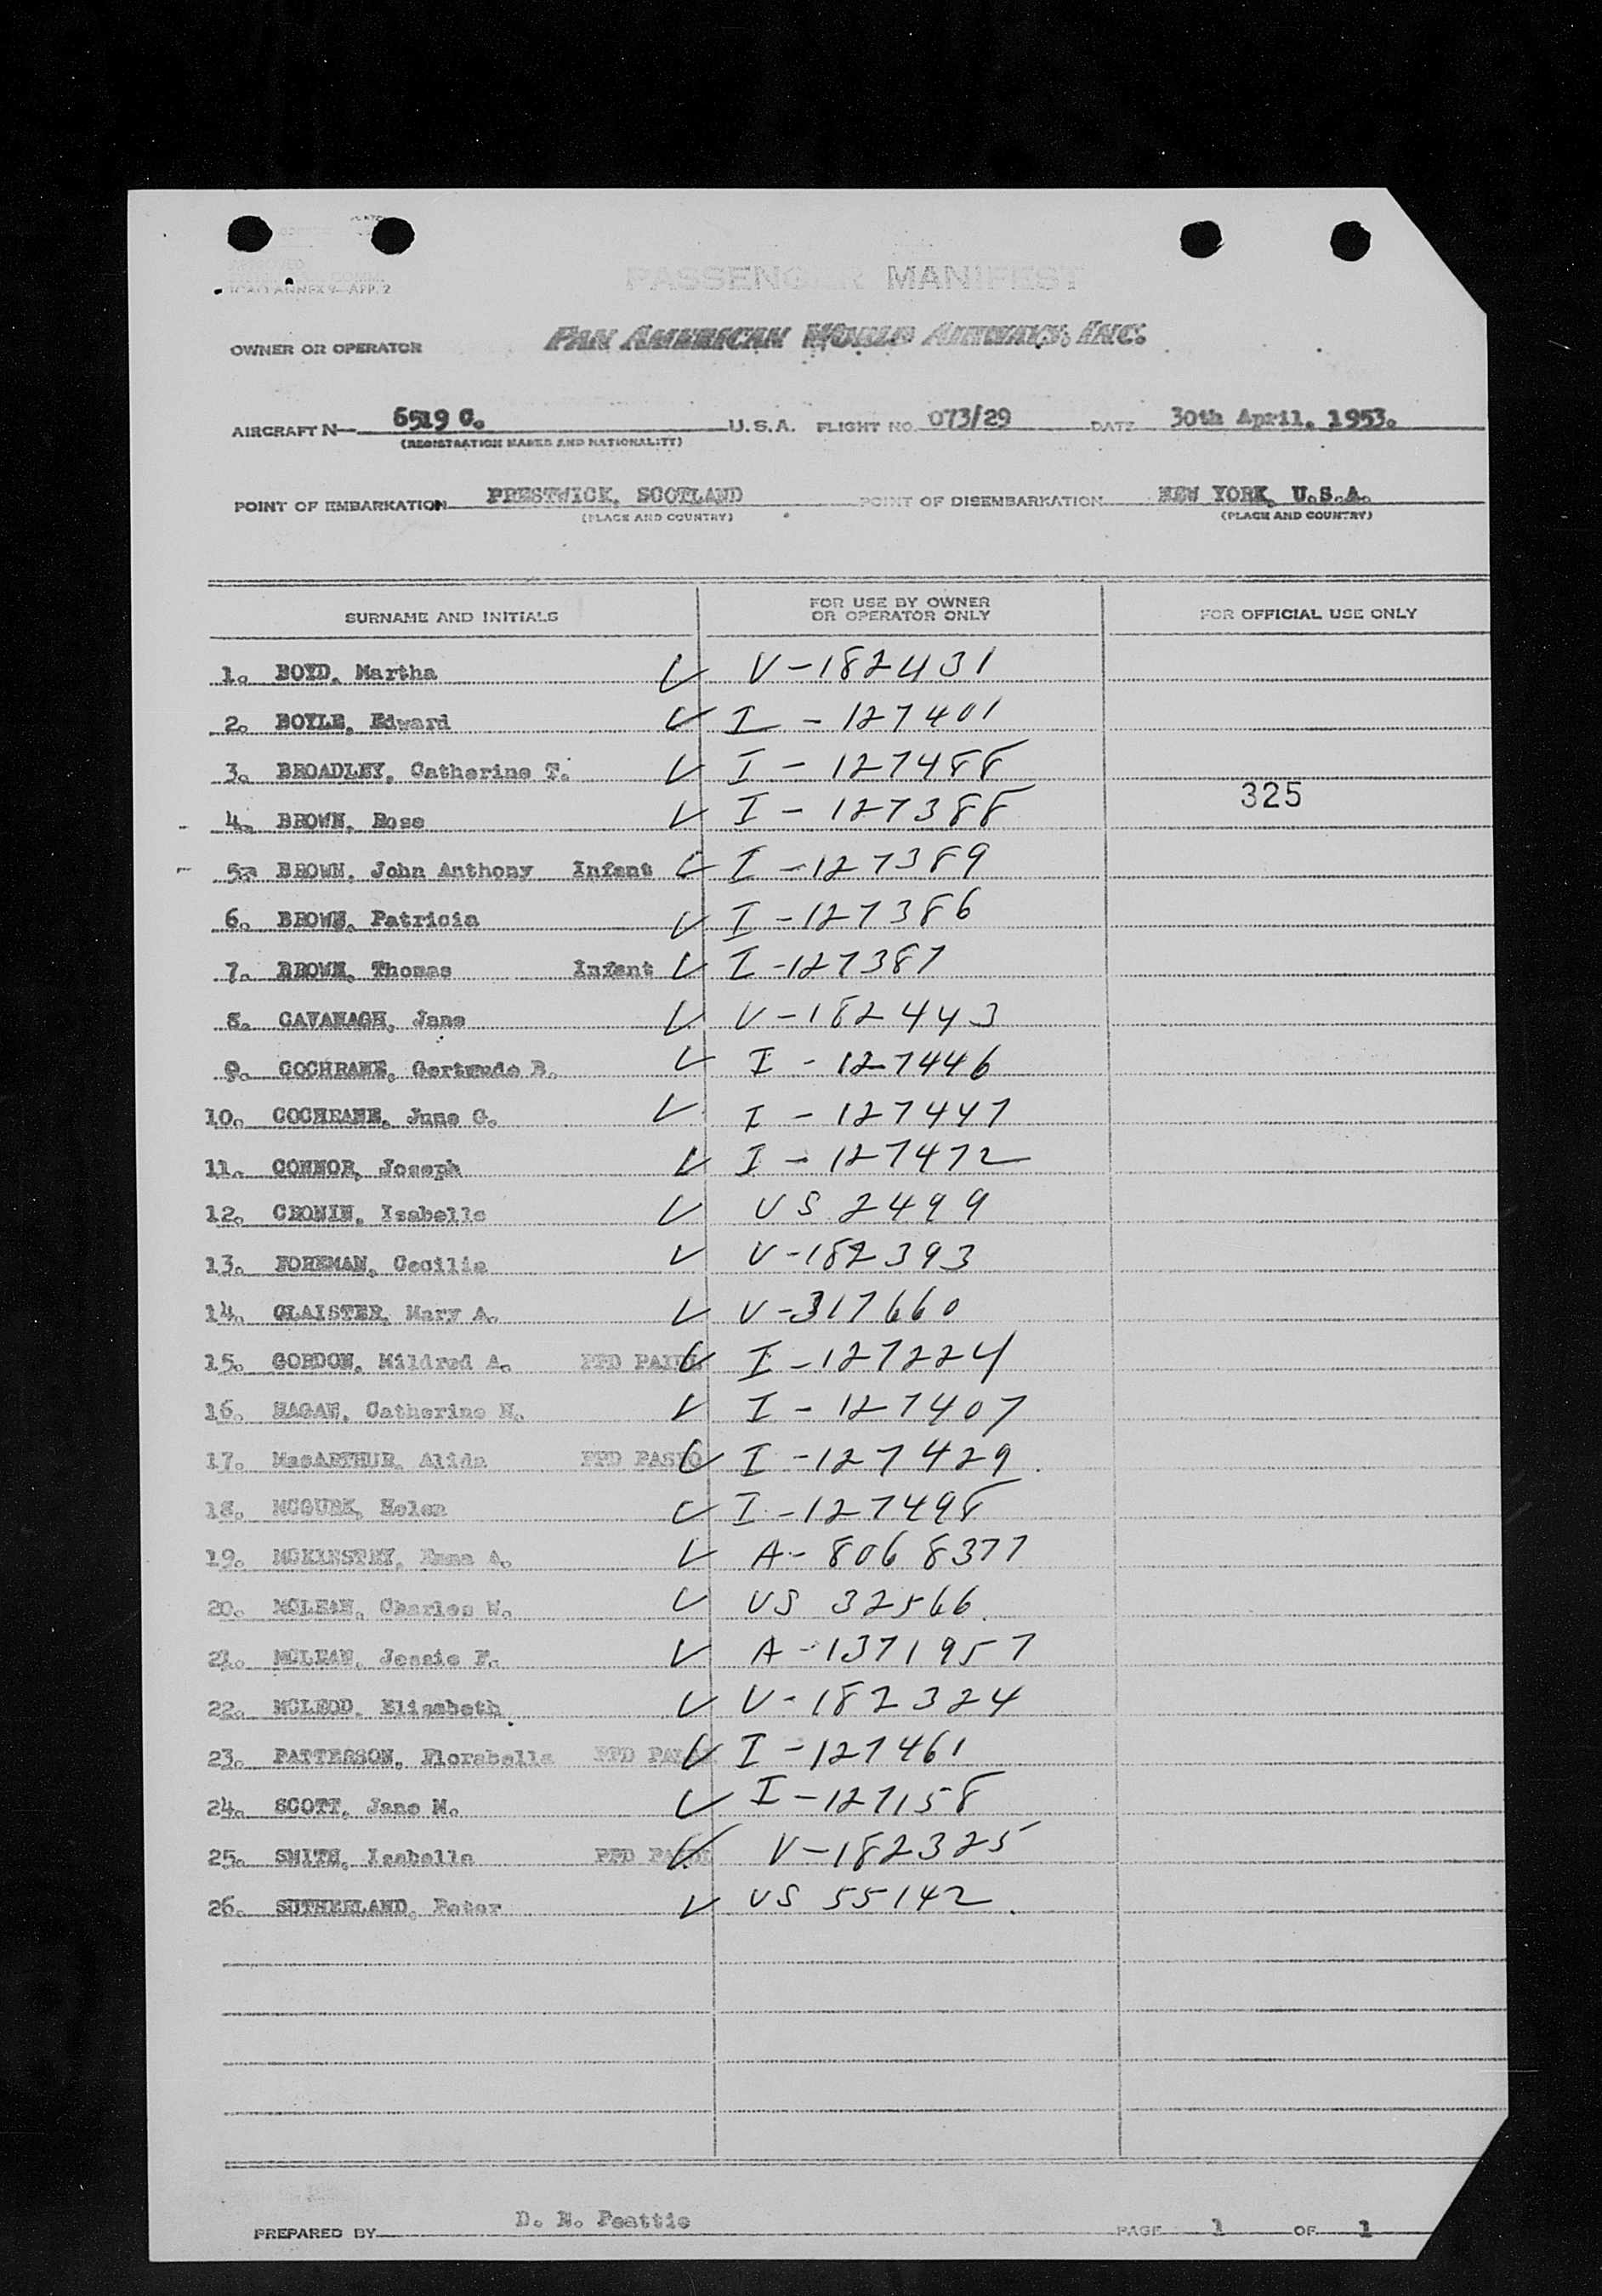 ICAO ANNEX 9—APP. 2
PASSENGER MANIFEST
OWNER OR OPERATOR PAN AMERICAN WORLD AIRWAYS, INC.
AIRCRAFT N— 6519 C. U.S.A. FLIGHT NO. 073/29 DATE 30th April, 1953.
(REGISTRATION MARKS AND NATIONALITY)
POINT OF EMBARKATION PRESTWICK, SCOTLAND POINT OF DISEMBARKATION NEW YORK, U.S.A.
(PLACE AND COUNTRY) (PLACE AND COUNTRY)
SURNAME AND INITIALS FOR USE BY OWNER OR OPERATOR ONLY FOR OFFICIAL USE ONLY
1. BOYD, Martha V-182431
2. BOYLE, Edward I-127401
3. BROADLEY, Catherine T. I-127488
325
4. BROWN, Rose I-127388
5. BROWN, John Anthony Infant I-127389
6. BROWN, Patricia I-127386
7. BROWN, Thomas Infant I-127387
8. CAVANAGH, Jane V-182443
9. COCHRANE, Gertrude B. I-127446
10. COCHRANE, June G. I-127447
11. CONNOR, Joseph I-127472
12. CRONIN, Isabella US 2499
13. FOREMAN, Cecilia V-182393
14. GLAISTER, Mary A. V-317660
15. GORDON, Mildred A. PPD I-127224
16. HAGAN, Catherine N. I-127407
17. MacARTHUR, Alida PPD I-127429
18. MCGURK, Helen I-127498
19. MCKINSTRY, Emma A. A-8068377
20. MCLEAN, Charles W. US 32566
21. MCLEAN, Jessie F. A-1371957
22. MCLEOD, Elizabeth V-182324
23. PATTERSON, Florabella PPD I-127461
24. SCOTT, Jane M. I-127158
25. SMITH, Isabella PPD V-182325
26. SUTHERLAND, Peter US 55142
PREPARED BY D. N. Peattie PAGE 1 OF 1